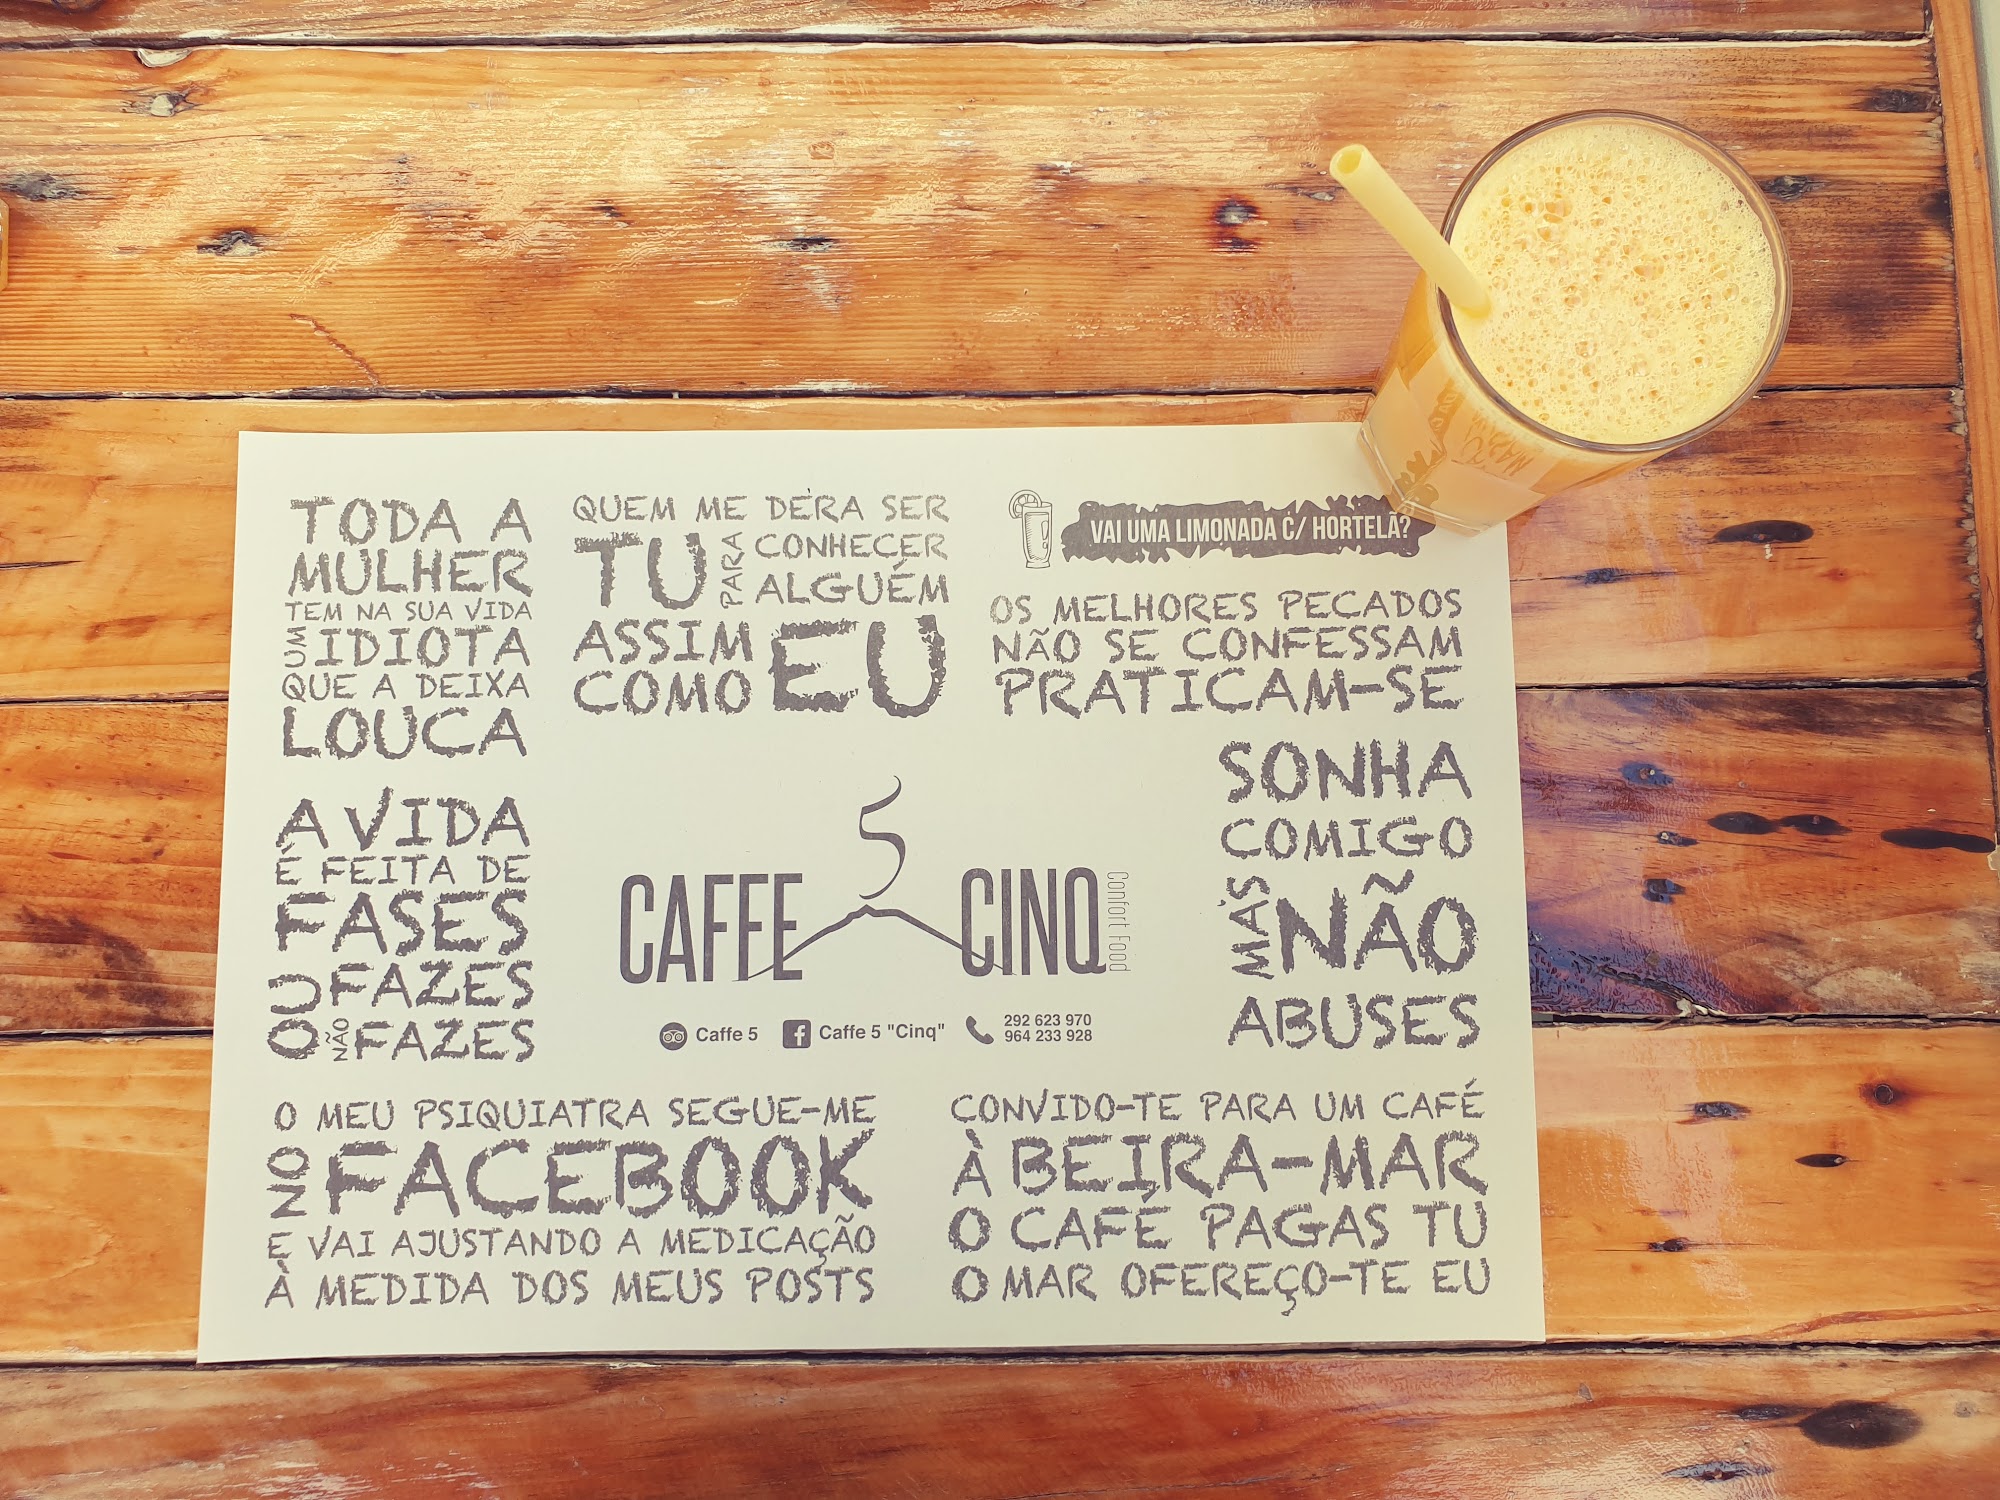 TODA A
MULHER
TEM NA SUA VIDA
UM IDIOTA
QUE A DEIXA
LOUCA
QUEM ME DERA SER
TU PARA CONHECER
ALGUÉM
ASSIM
COMO EU
VAI UMA LIMONADA C/ HORTELÃ?
OS MELHORES PECADOS
NÃO SE CONFESSAM
PRATICAM-SE
A VIDA
É FEITA DE
FASES
OU FAZES
NÃO FAZES
5
CAFFE CINQ
Confort Food
Caffe 5
Caffe 5 "Cinq"
292 623 970
964 233 928
SONHA
COMIGO
MAS NÃO
ABUSES
O MEU PSIQUIATRA SEGUE-ME
NO FACEBOOK
E VAI AJUSTANDO A MEDICAÇÃO
À MEDIDA DOS MEUS POSTS
CONVIDO-TE PARA UM CAFÉ
À BEIRA-MAR
O CAFÉ PAGAS TU
O MAR OFEREÇO-TE EU